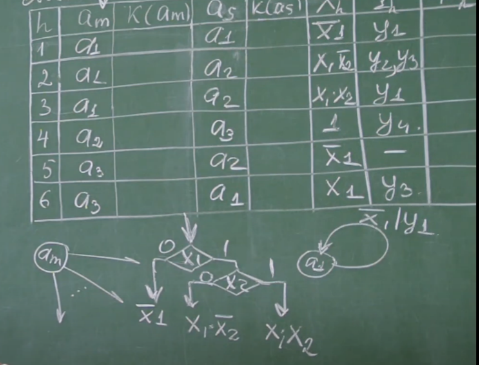 h am K(am) as K(as) Xh
1 a1 a1 x̅1 y1
2 a1 a2 x1x̅2 y2,y3
3 a1 a2 x1·x2 y1
4 a2 a3 1 y4.
5 a3 a2 x̅1 —
6 a3 a1 x1 y3.
x̅1/y1
am 0 x1 1 a1
0 x2 1
x̅1 x1·x̅2 x1x2